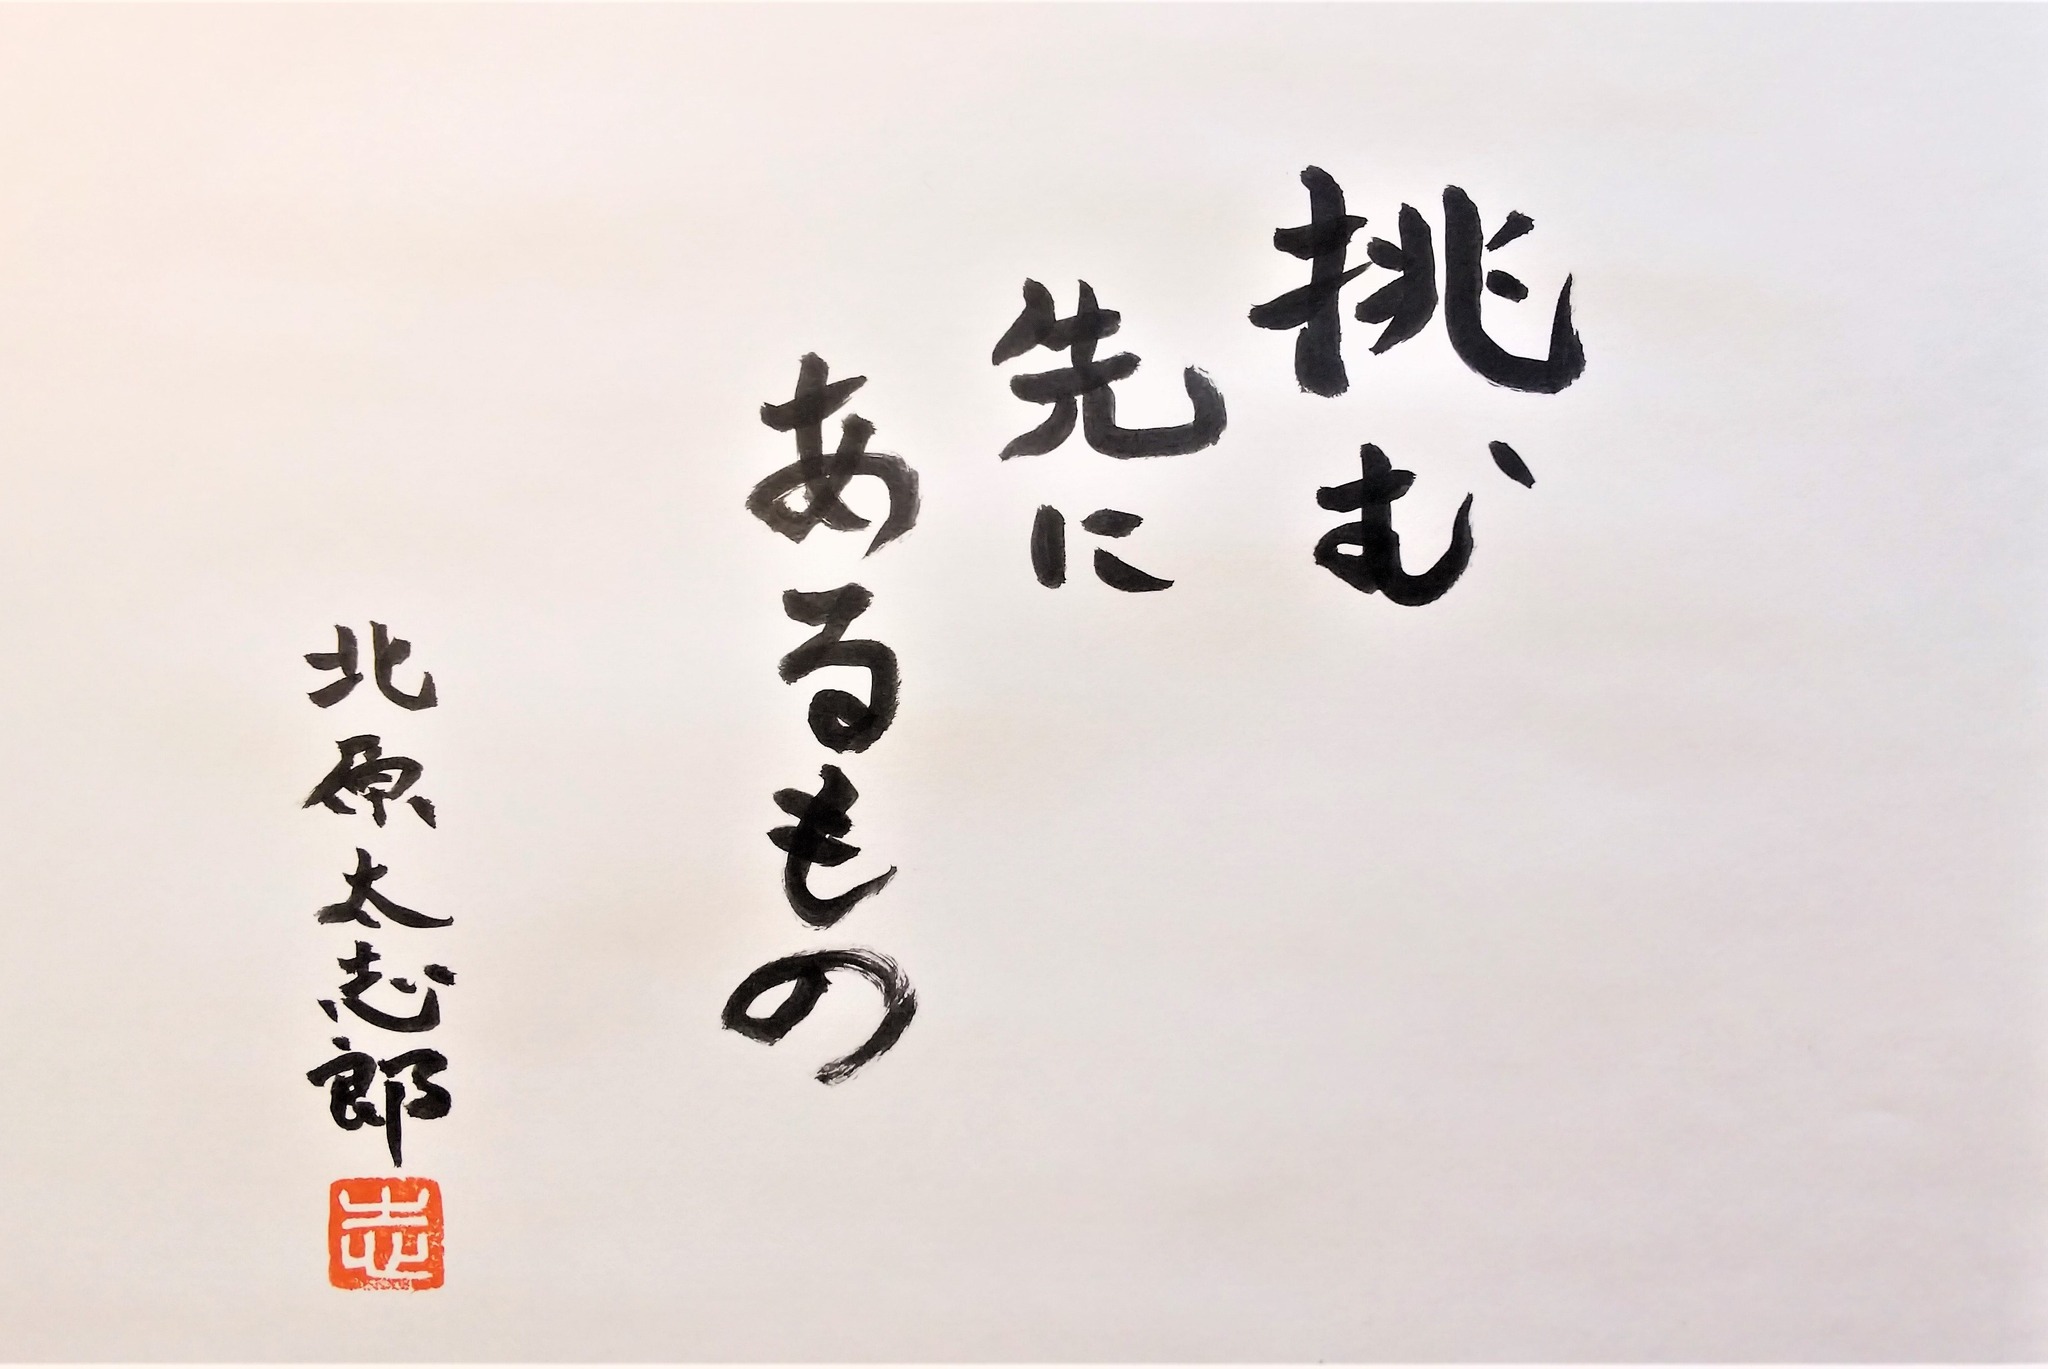 挑む
先に
あるもの
北原太志郎
志